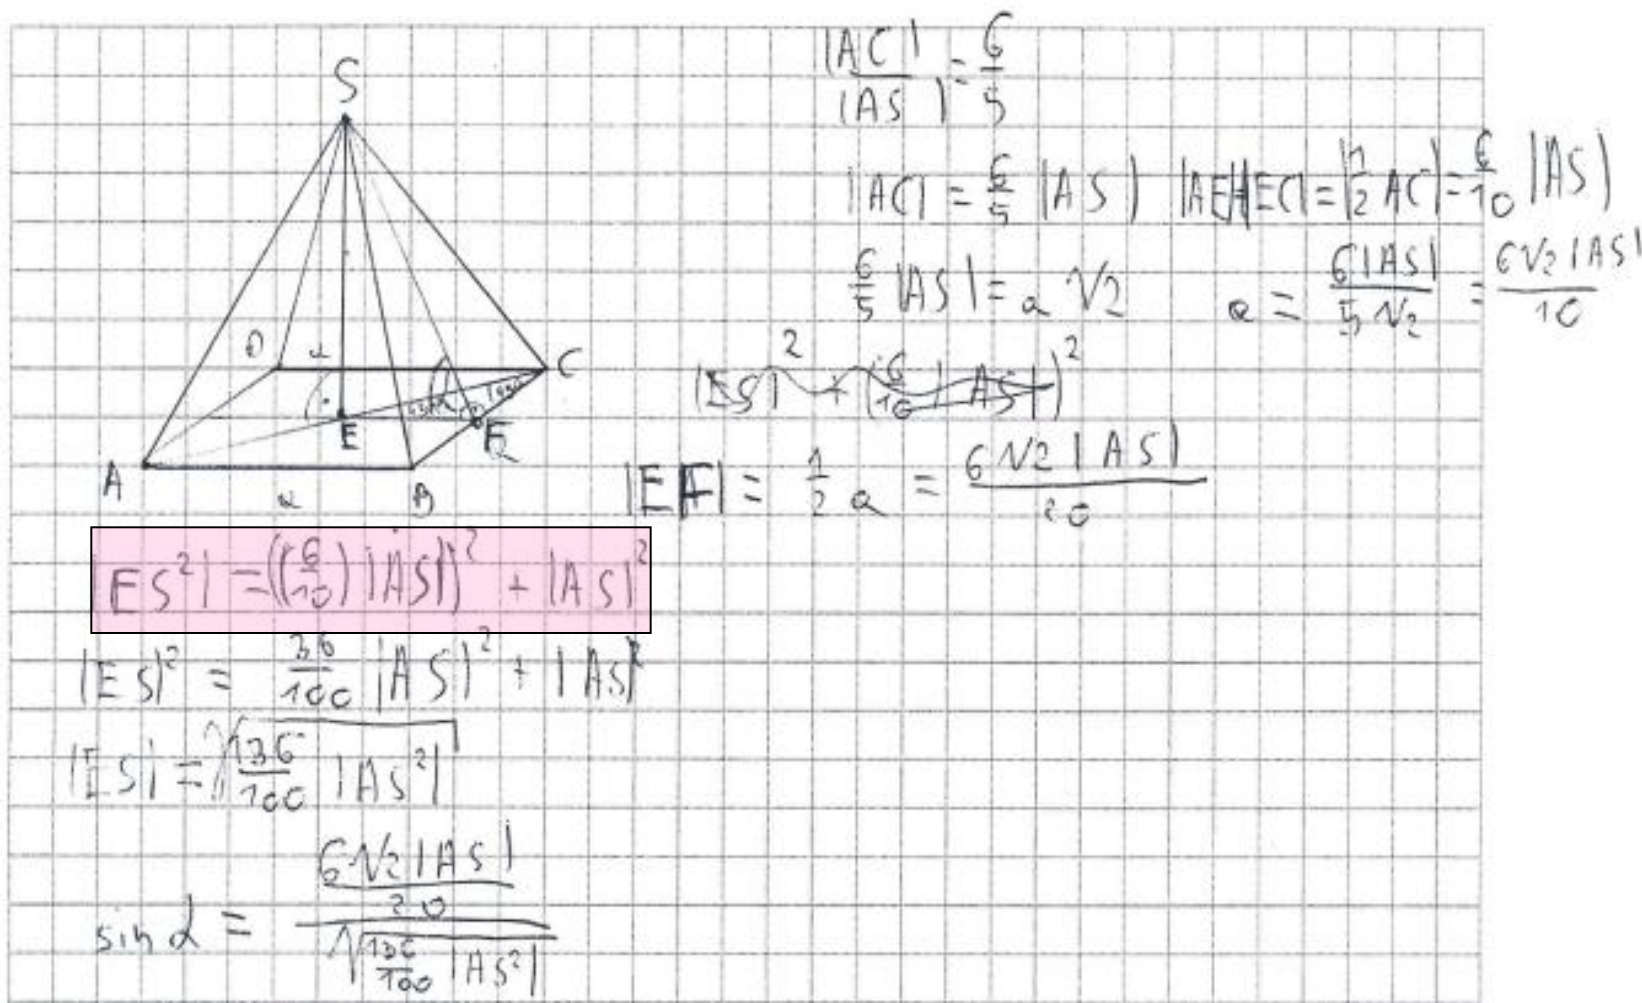 |AC|/|AS| = 6/5
S
|AC| = 6/5 |AS| |AE|=|EC|=|1/2 AC|= 6/10 |AS|
6/5 |AS| = a √2 a = 6|AS|/5√2 = 6√2|AS|/10
D C
|ES|² + (6/10 |AS|)²
E F
A a B
|EF| = 1/2 a = 6√2|AS|/20
|ES²| = ((6/10)|AS|)² + |AS|²
|ES|² = 36/100 |AS|² + |AS|²
|ES| = √(136/100 |AS²|)
sin α = (6√2|AS|/20)/√(136/100 |AS²|)